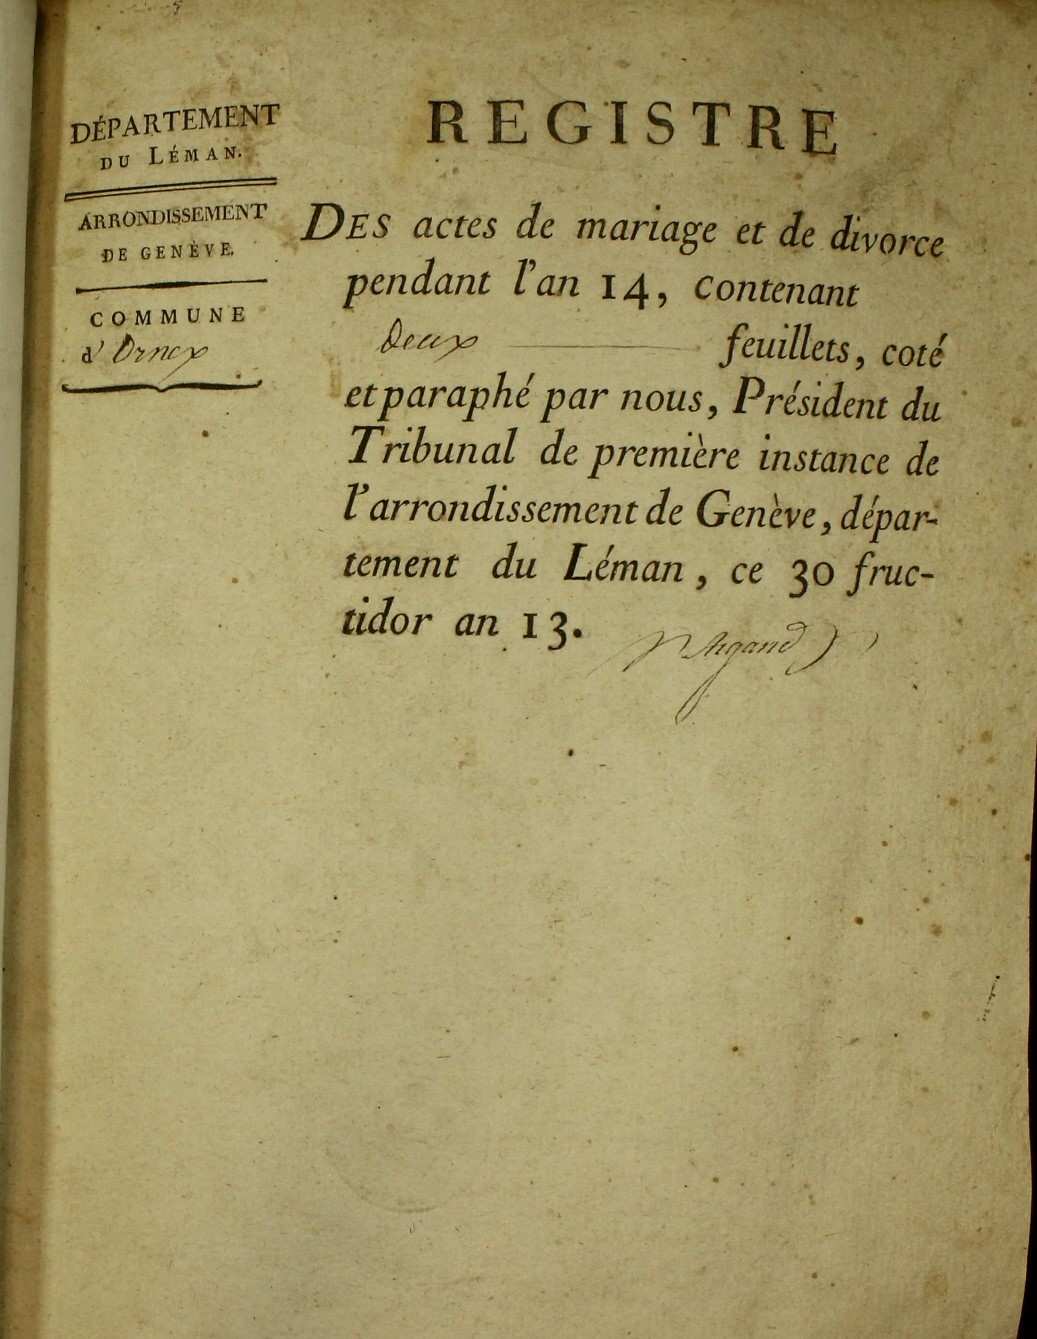 DÉPARTEMENT
DU LÉMAN.
ARRONDISSEMENT
DE GENÈVE.
COMMUNE
d' Ornex
REGISTRE
DES actes de mariage et de divorce
pendant l'an 14, contenant
Deux feuillets, coté
et paraphé par nous, Président du
Tribunal de première instance de
l'arrondissement de Genève, dépar-
tement du Léman, ce 30 fruc-
tidor an 13.